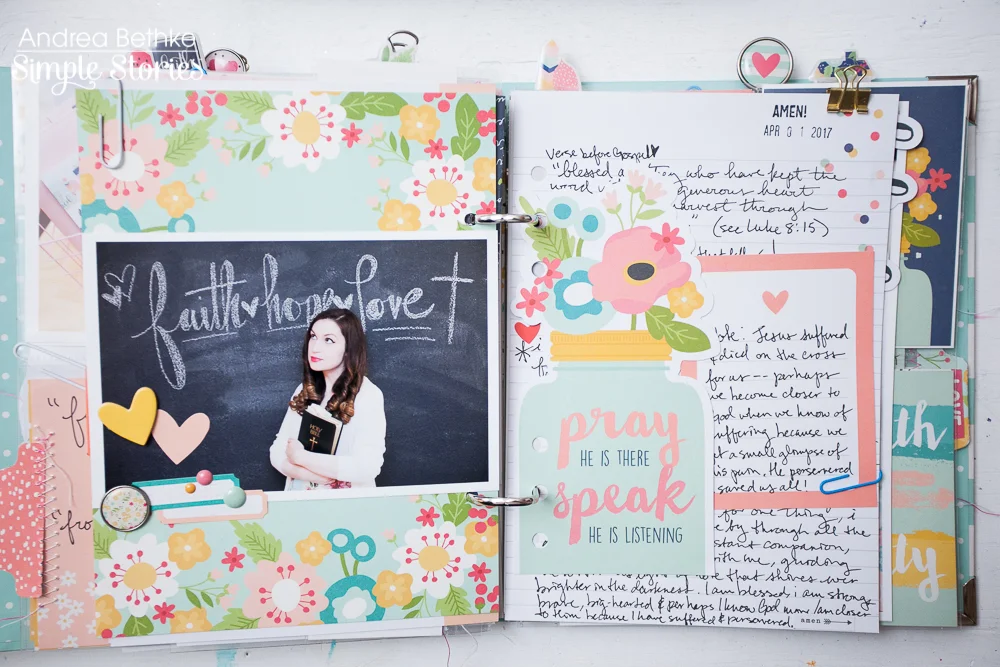 Andrea Bethke
Simple Stories
faith hope love
HOLY BIBLE
AMEN!
APR 01 2017
Verse before Gospel
"blessed who have kept the
word generous heart
harvest through
(see Luke 8:15)
pray
HE IS THERE
speak
HE IS LISTENING
Jesus suffered
died on the cross
for us -- perhaps
we become closer to
god when we know of
suffering because we
a small glimpse of
his pain. He persevered
saved us all!
for one thing", i
by through all the
constant companion,
with me, guiding
that shines ever
brighter in the darkness. I am blessed i am strong
brave, big-hearted & perhaps I know God more / am closer
to Him because I have suffered & persevered.
amen
LOVE
"f
"fro
th
ty